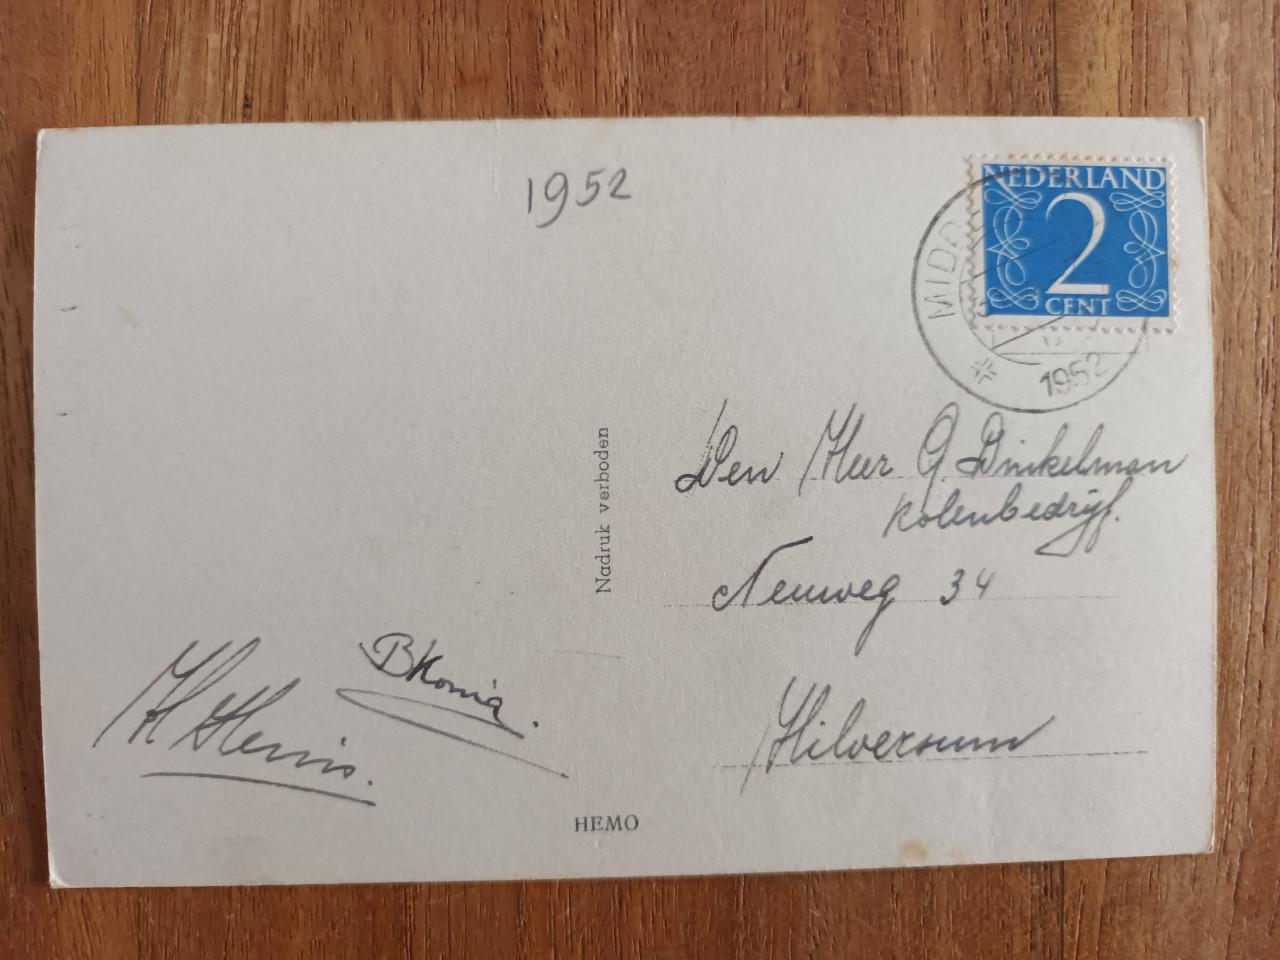 1952
NEDERLAND
2
CENT
MIDD
1952
Den Heer G. Dinkelman
Kolenbedrijf.
Neuweg 34
Hilversum
Nadruk verboden
BKonig.
H
HEMO